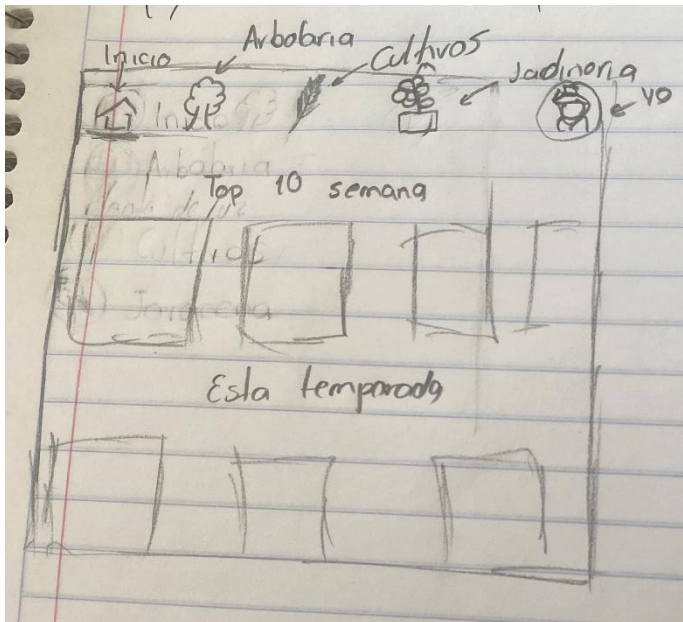 Inicio Arbolaria Cultivos Jadineria YO
Top 10 semana
Esta temporada